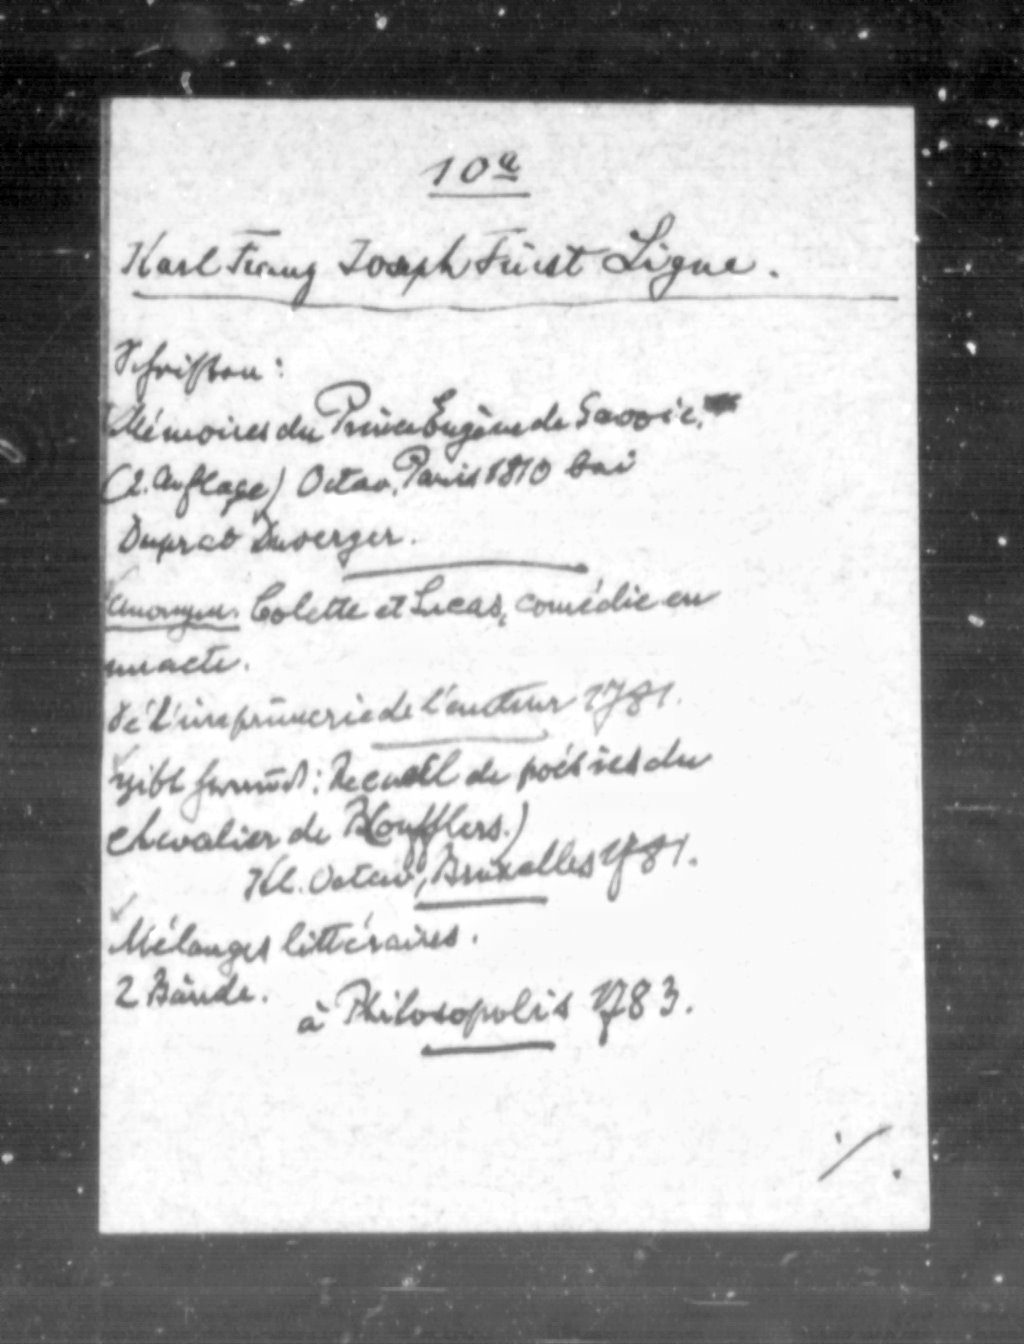 10a
Karl Franz Joseph Fürst Ligne.
Schriften:
Mémoires du Prince Eugène de Savoie,
(2. Auflage) Octav, Paris 1810 bei
Duprat Duverger.
Anonym. Colette et Lucas, comédie en
un acte.
de l'imprimerie de l'auteur 1781.
gibt heraus: Recueil de poésies du
chevalier de Boufflers.)
Kl. Octav, Bruxelles 1781.
Mélanges littéraires.
2 Bände.
à Philosopolis 1783.
./.